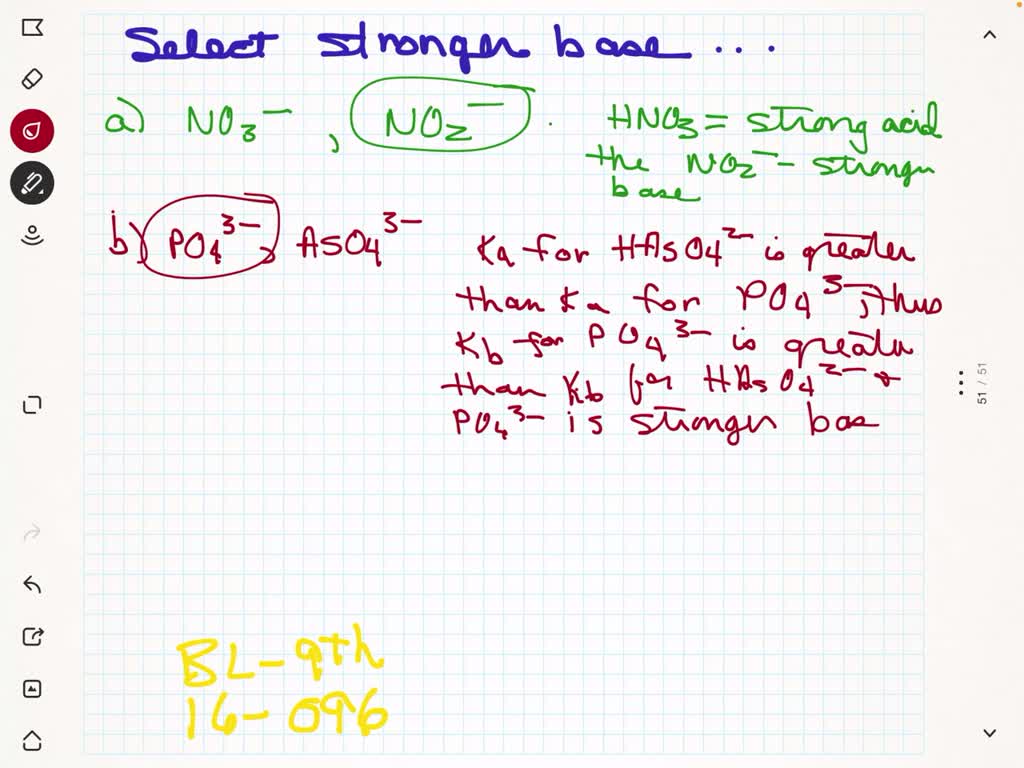 Select stronger base ...
a) NO₃⁻ , NO₂⁻ . HNO₃ = strong acid
the NO₂⁻ - stronger
base
b) PO₄³⁻, AsO₄³⁻ Ka for HAsO₄²⁻ is greater
than Ka for PO₄³⁻, thus
Kb for PO₄³⁻ is greater
than Kb for HAsO₄²⁻ +
PO₄³⁻ is stronger base
BL-9th
16-096
51 / 51